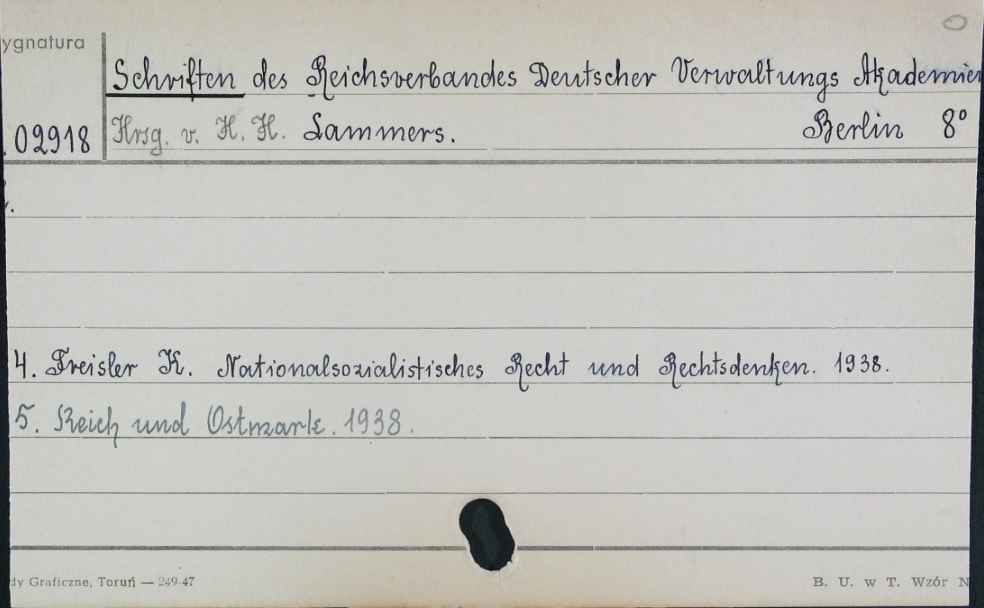 ygnatura
Schriften des Reichsverbandes Deutscher Verwaltungs Akademien
02918 Hrsg. v. H. H. Lammers. Berlin 8°
4. Freisler K. Nationalsozialistisches Recht und Rechtsdenken. 1938.
5. Reich und Ostmark. 1938.
dy Graficzne, Toruń — 249-47 B. U. w T. Wzór N